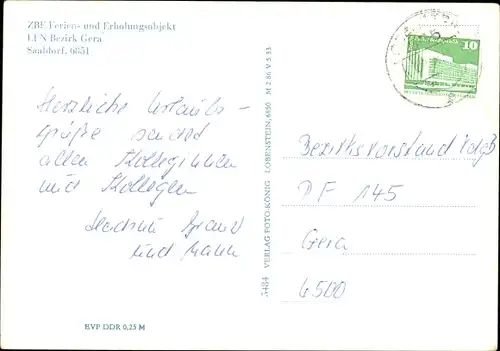 ZBE Ferien- und Erholungsobjekt
LFN Bezirk Gera
Saaldorf, 6851
Herzliche Urlaubs-
grüße sendet
allen Kolleginnen
und Kollegen
und Mann
BVP DDR 0,25 M
5484 VERLAG FOTO-KÖNIG LOBENSTEIN, 6850 M 2 86 V 5 53
10
Bezirksvorstand
PF 145
Gera
6500